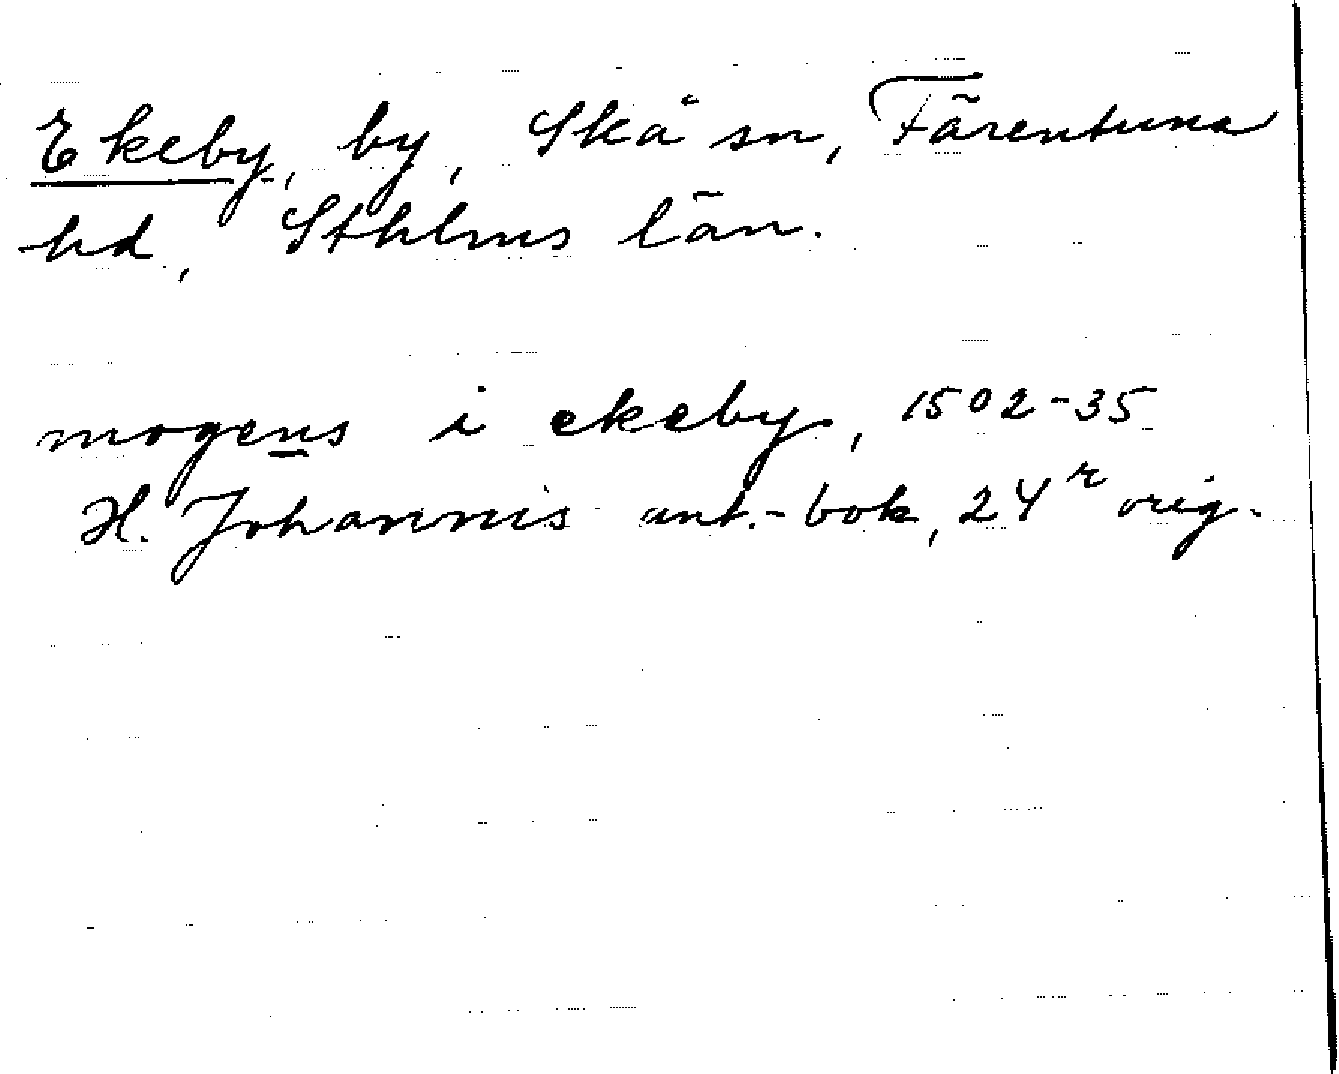 Ekeby, by, Skå sn, Färentuna
hd, Sthlms län.
mogens i ekeby, 1502-35
H. Johannis ant.-bok, 24r orig.